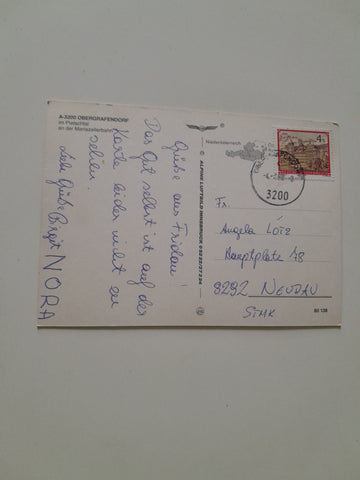 A-3200 OBERGRAFENDORF
im Pielachtal
an der Mariazellerbahn
Grüße aus Fridau!
Das Gut selbst ist auf der
Karte leider nicht zu
sehen.
Liebe Grüße Birgit
NORA
© ALPINE LUFTBILD INNSBRUCK
Niederösterreich
4
3200
Fr.
Angela Lötz
Hauptplatz 48
8292 NEUDAU
STMK